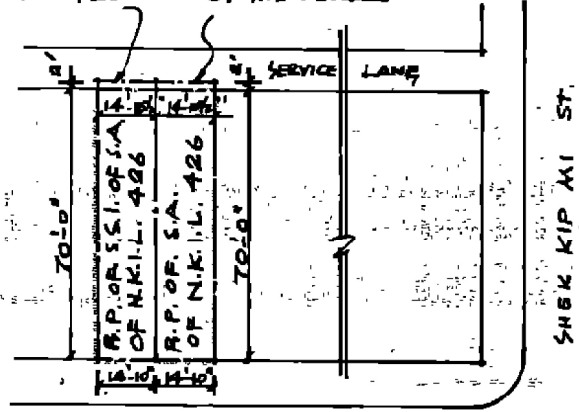 2'
2'
SERVICE LANE
70'-0"
R.P. OF S.S.I. OF S.A.
OF N.K.I.L. 426
R.P. OF. S.A.
OF N.K.I.L. 426
70'-0"
14'-10" 14'-10"
SHEK KIP MI ST.